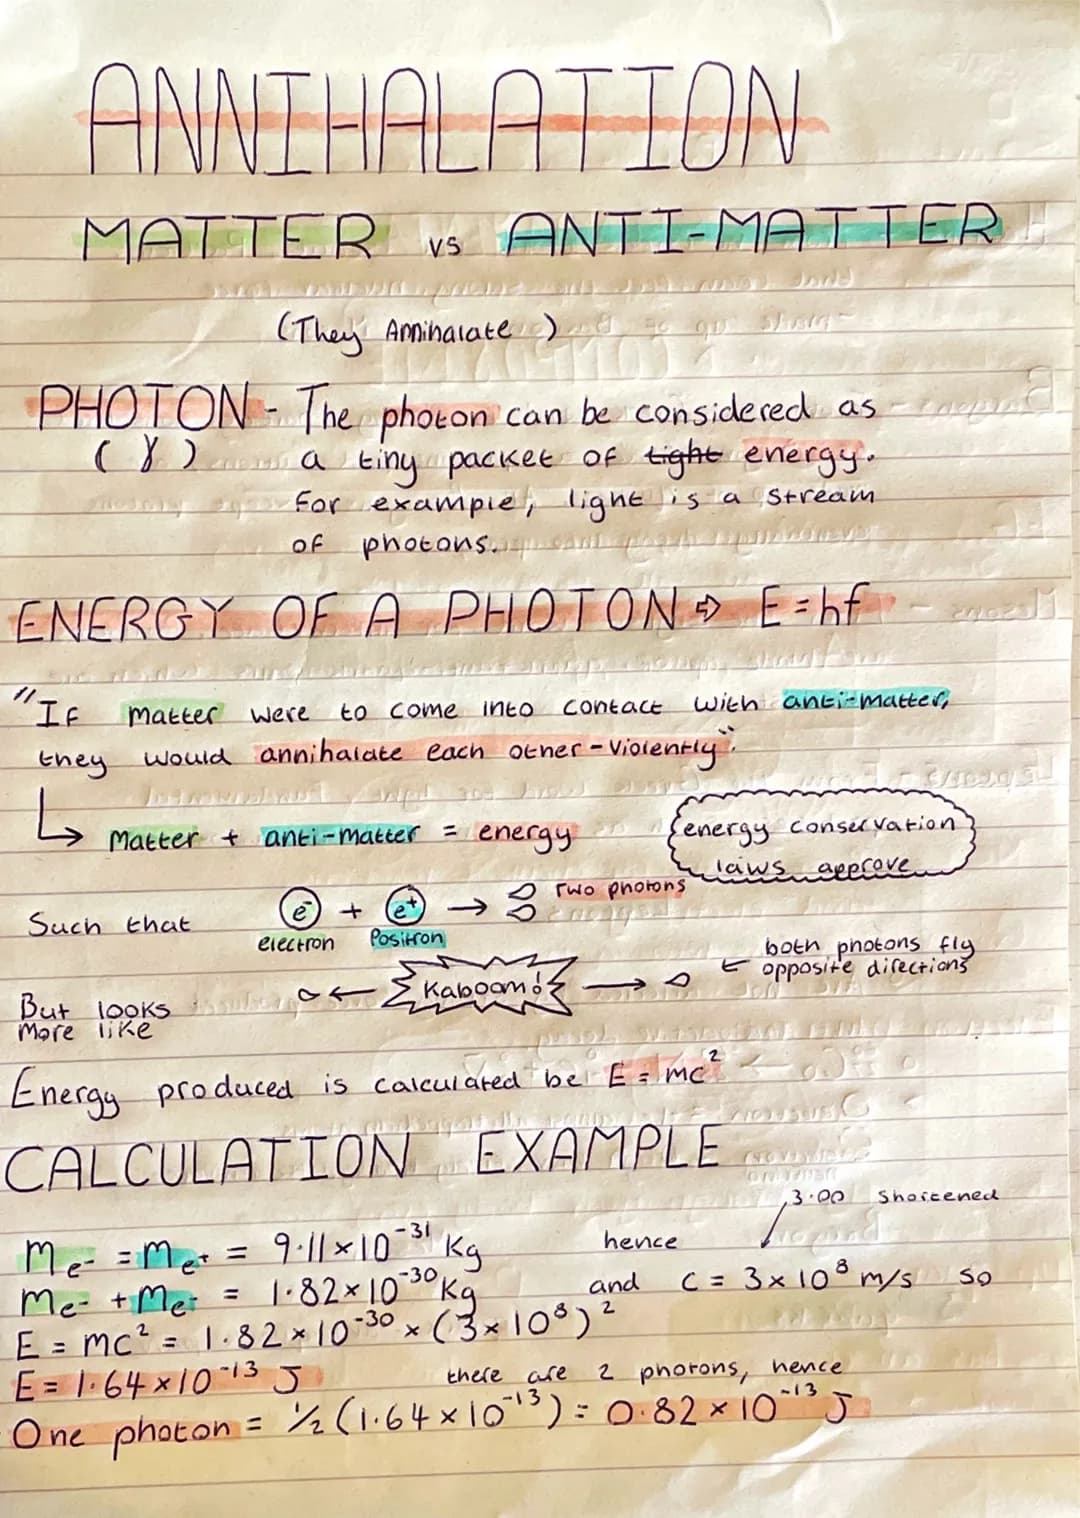 ANNIHALATION
MATTER vs ANTI-MATTER
(They Annihalate)
PHOTON - The photon can be considered as
(γ) a tiny packet of tight energy.
For example, light is a stream
of photons.
ENERGY OF A PHOTON ⇨ E=hf
"If matter were to come into contact with anti-matter,
they would annihalate each other - violently".
Matter + anti-matter = energy
energy conservation
laws approve
Such that e⁻ + e⁺ → Two photons
electron Positron
But looks
more like
← Kaboom! →
← both photons fly
opposite directions
Energy produced is calculated be E = mc²
CALCULATION EXAMPLE
3.00 Shortened
Me- = Me+ = 9.11×10⁻³¹ Kg hence
Me- + Me+ = 1.82×10⁻³⁰ Kg and C = 3×10⁸ m/s so
E = mc² = 1.82×10⁻³⁰ × (3×10⁸)²
E = 1.64×10⁻¹³ J there are 2 photons, hence
One photon = ½(1.64×10⁻¹³) = 0.82×10⁻¹³ J